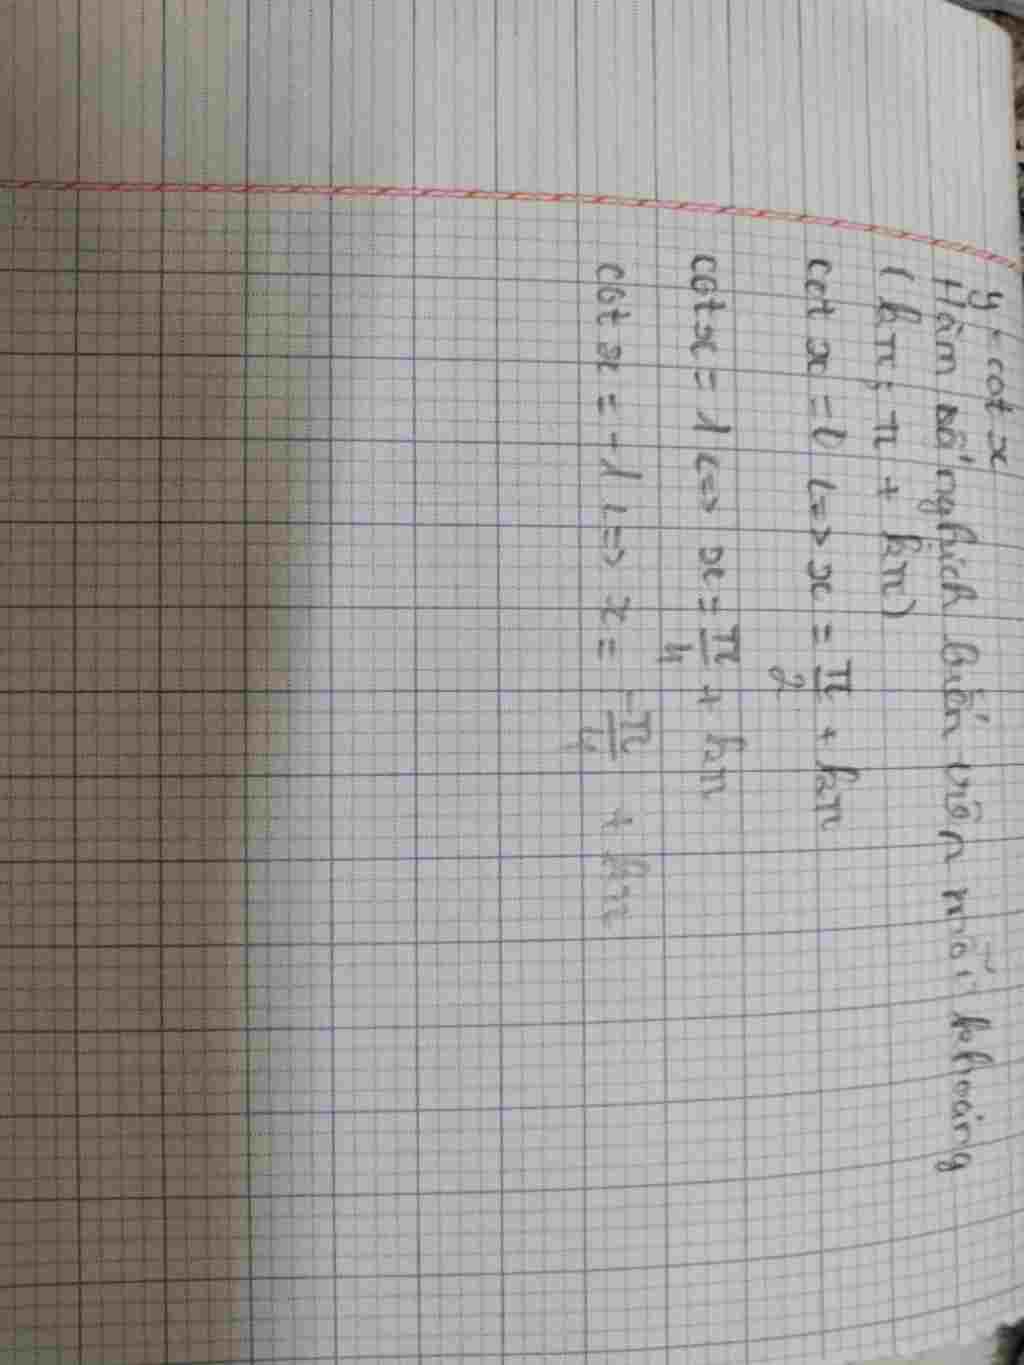 y = cot x
Hàm số nghịch biến trên mỗi khoảng
(kπ; π + kπ)
cot x = 0 <=> x = π/2 + kπ
cot x = 1 <=> x = π/4 + kπ
cot x = -1 <=> x = -π/4 + kπ